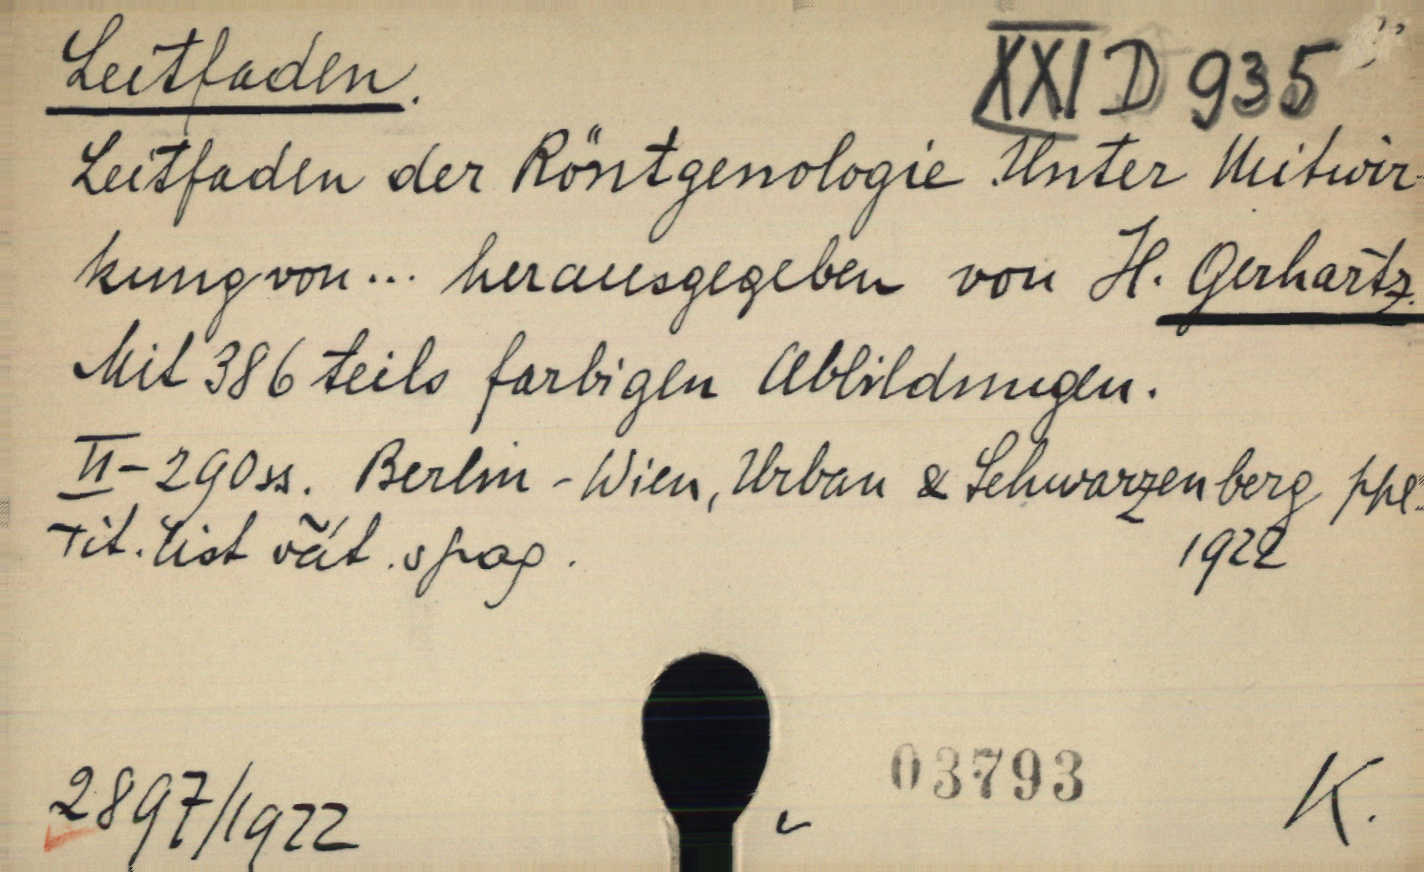 Leitfaden.
XXI D 935
Leitfaden der Röntgenologie. Unter Mitwir-
kung von... herausgegeben von H. Gerhartz.
Mit 386 teils farbigen Abbildungen.
II-290 ss. Berlin - Wien, Urban & Schwarzenberg
Tit. list
1922
03793
2897/1922
K.